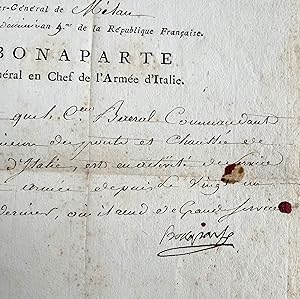 er-Général de Milan
an 4.me de la République Française.
BONAPARTE
néral en Chef de l'Armée d'Italie.
que le C.en Commandant
des ponts et Chaussée de
d'Italie, est en activité de service
armée depuis le Vingt un
dernier, ou il a rendu de Grand Service
Bonaparte